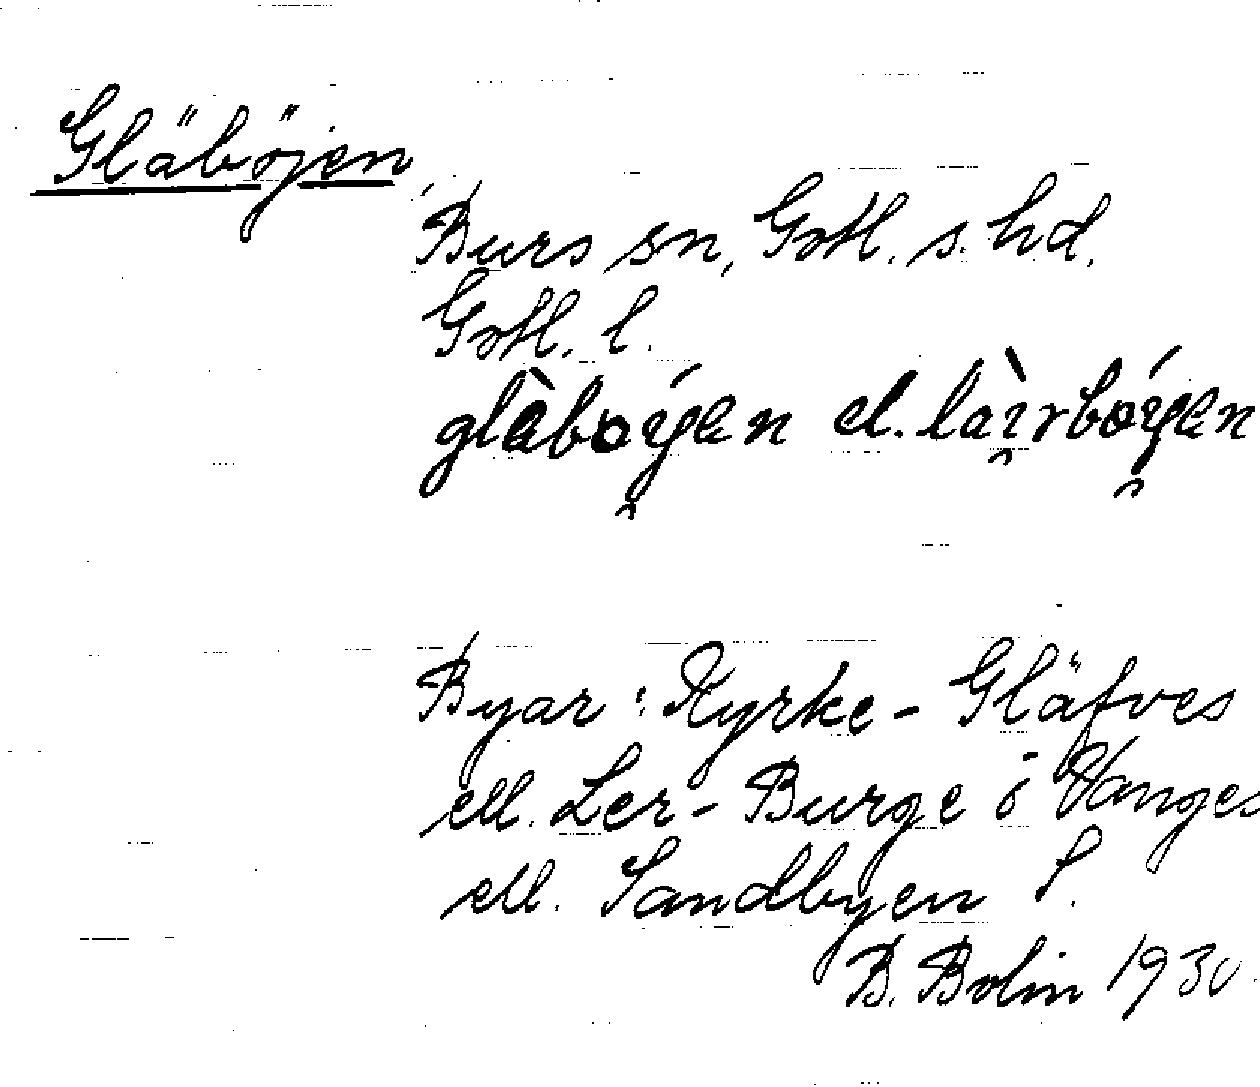 Gläböjen
Burs sn, Gotl. s. hd.
Gotl. l.
glàbǫ́i̯en el. lài̯rbǫ́i̯en
Byar: Kyrke-Gläfves
ell. Ler-Burge o Vanges
ell. Sandbyen S.
B. Bolin 1930.